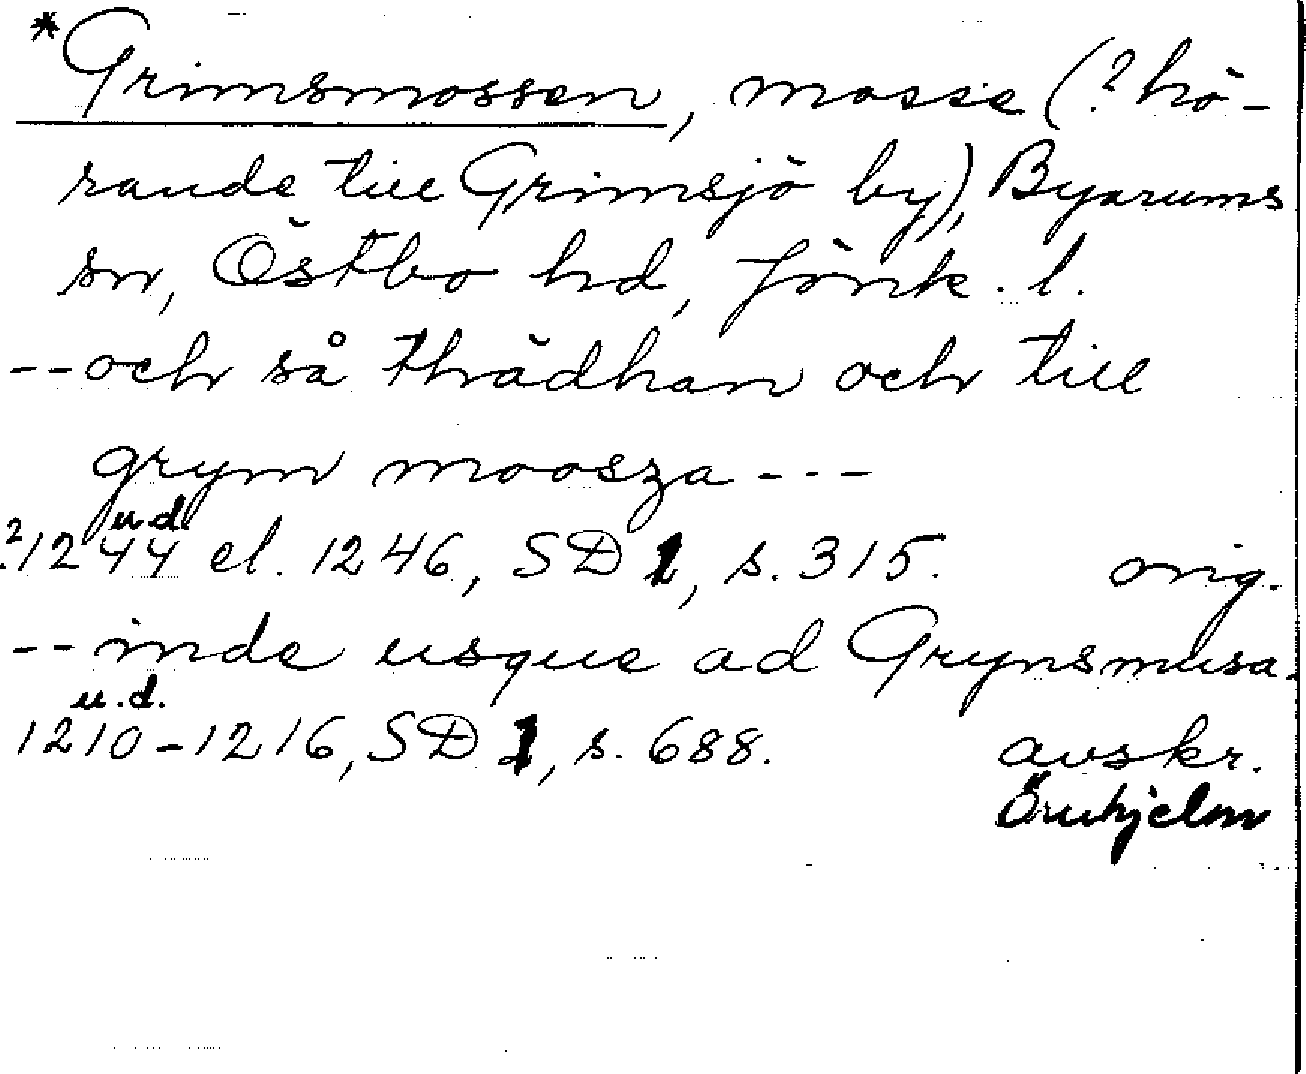 *Grimsmossen, mosse (? hö-
rande till Grimsjö by), Byarums
sn, Östbo hd, Jönk. l.
--och så thrädhan och till
grym moosza ---
u.d.
?1244 el. 1246, SD 1, s. 315. orig.
--inde usque ad Grynsmusa.
u.d.
1210-1216, SD 1, s. 688. avskr.
Örnhjelm